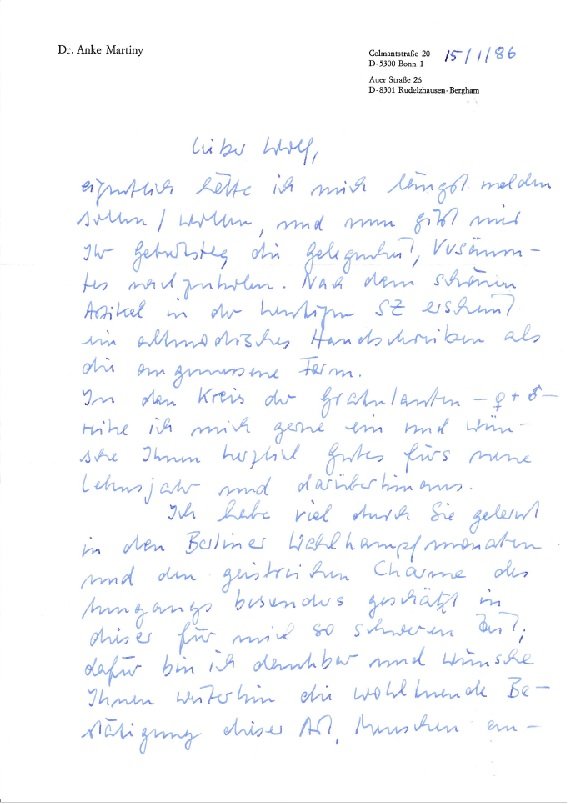 Dr. Anke Martiny
Colmantstraße 20
D-5300 Bonn 1
15/1/86
Auer Straße 25
D-8301 Rudelzhausen-Bergham
Lieber Wolf,
eigentlich hätte ich mich längst melden
sollen / wollen, und nun gibt mir
Ihr Geburtstag die Gelegenheit, Versäum-
tes nachzuholen. Nach dem schönen
Artikel in der heutigen SZ erscheint
ein altmodisches Handschreiben als
die angemessene Form.
In den Kreis der Gratulanten – ♀ + ♂ –
reihe ich mich gerne ein und wün-
sche Ihnen herzlich Gutes fürs neue
Lebensjahr und darüberhinaus.
Ich habe viel durch Sie gelernt
in den Berliner Wahlkampfmonaten
und den geistreichen Charme des
Umgangs besonders geschätzt in
dieser für mich so schweren Zeit;
dafür bin ich dankbar und wünsche
Ihnen weiterhin die wohltuende Be-
stätigung dieser Art, Menschen an-